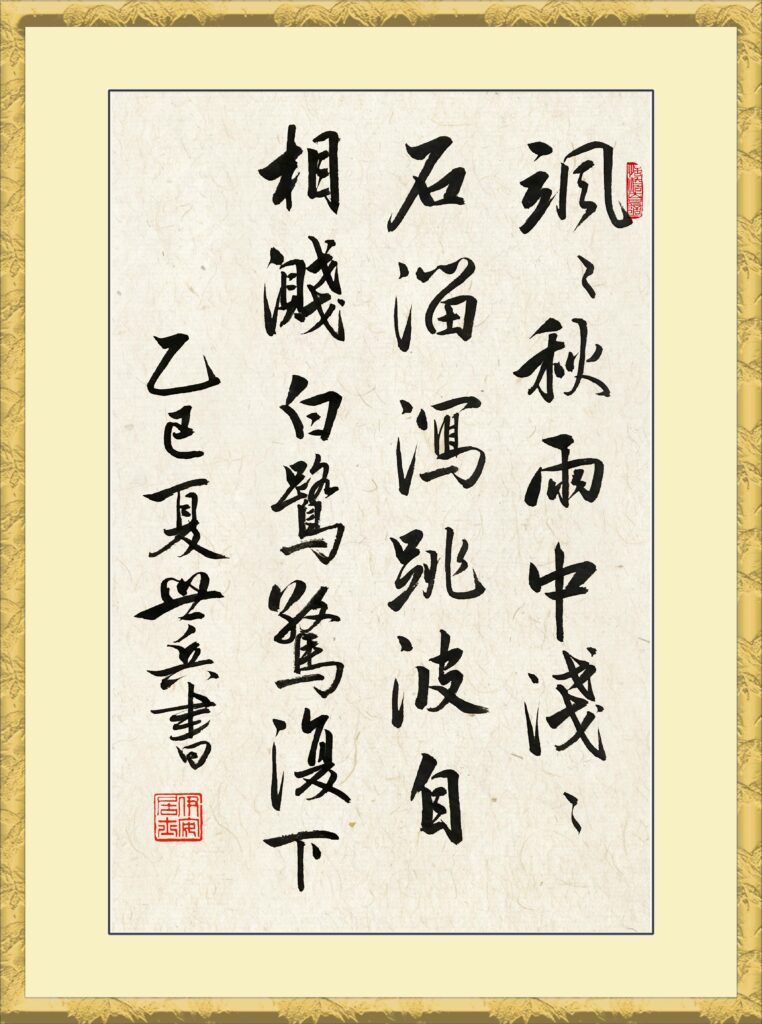 颯〻秋雨中淺〻
石溜瀉跳波自
相濺白鷺驚復下
乙巳夏世兵書
伊安居士